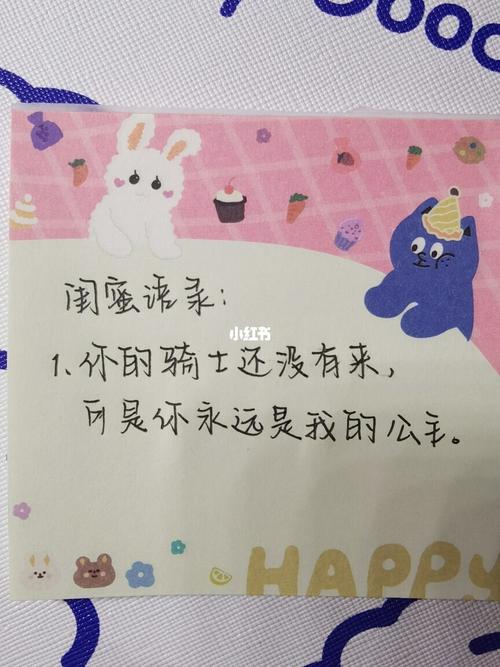 Good
闺蜜语录：
小红书
1.你的骑士还没有来，
可是你永远是我的公主。
HAPPY